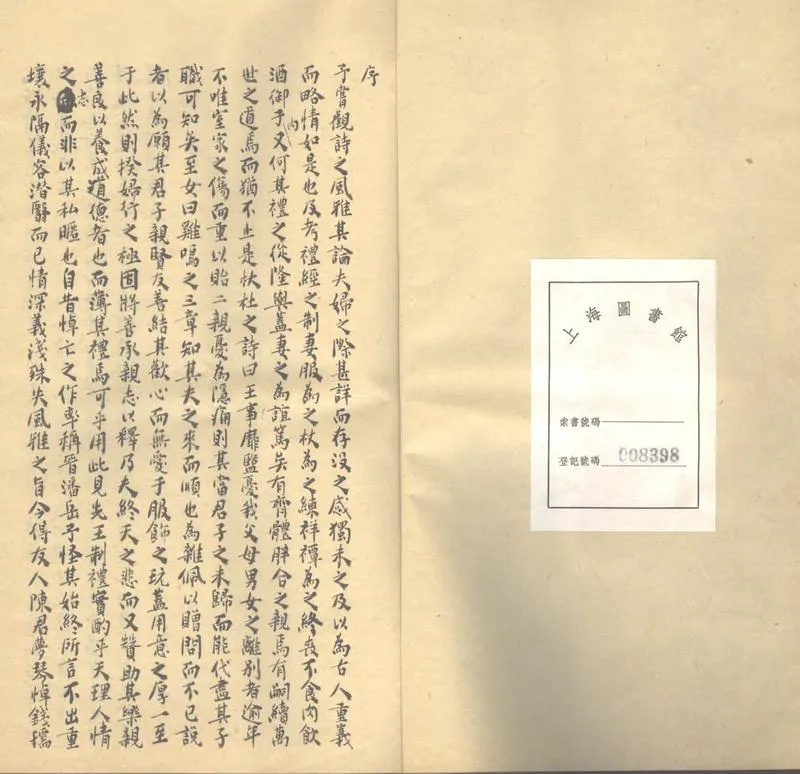 序
予嘗觀詩之風雅其論夫婦之際甚詳而存沒之感獨未之及以為古人重義
而略情如是也及考禮經之制妻服為之杖為之練祥禫為之終喪不食肉飲
酒御于內又何其禮之從隆與蓋妻之為誼篤矣有齊體胖合之親焉有嗣續萬
世之道焉而猶不止是杕杜之詩曰王事靡盬憂我父母男女之離別者逾年
不唯室家之傷而重以貽二親憂為隱痛則其當君子之未歸而能代盡其子
職可知矣至女曰雞鳴之三章知其夫之來而順也為雜佩以贈問而不已說
者以為願其君子親賢友善結其歡心而無愛于服飾之玩蓋用意之厚一至
于此然則揆婦行之極固將善承親志以釋乃夫終天之悲而又贊助其樂親
善良以養成道德者也而薄其禮焉可乎用此見先王制禮實酌乎天理人情
之志而非以其私暱也自昔悼亡之作率稱晉潘岳予怪其始終所言不出重
壤永隔儀容潛翳而已情深義淺殊失風雅之旨今得友人陳君夢琴悼錢孺
上海圖書館
索書號碼
登記號碼 008398